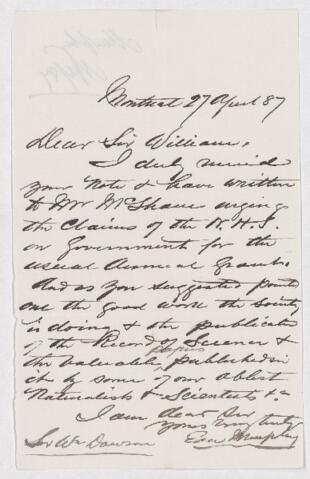 Montreal 27 April 87
Dear Sir William,
I duly received
your Note & have written
to Mr McShane urging
the Claims of the N.H.S.
on Government for the
usual Annual Grant.
And as you suggested pointed
out the good work the Society
is doing & the publication
of the Record of Science &
the valuable papers published in
it by some of our ablest
Naturalists & Scientists &c
I am dear Sir
yours very truly
Edgar Murphy
Sir Wm Dawson